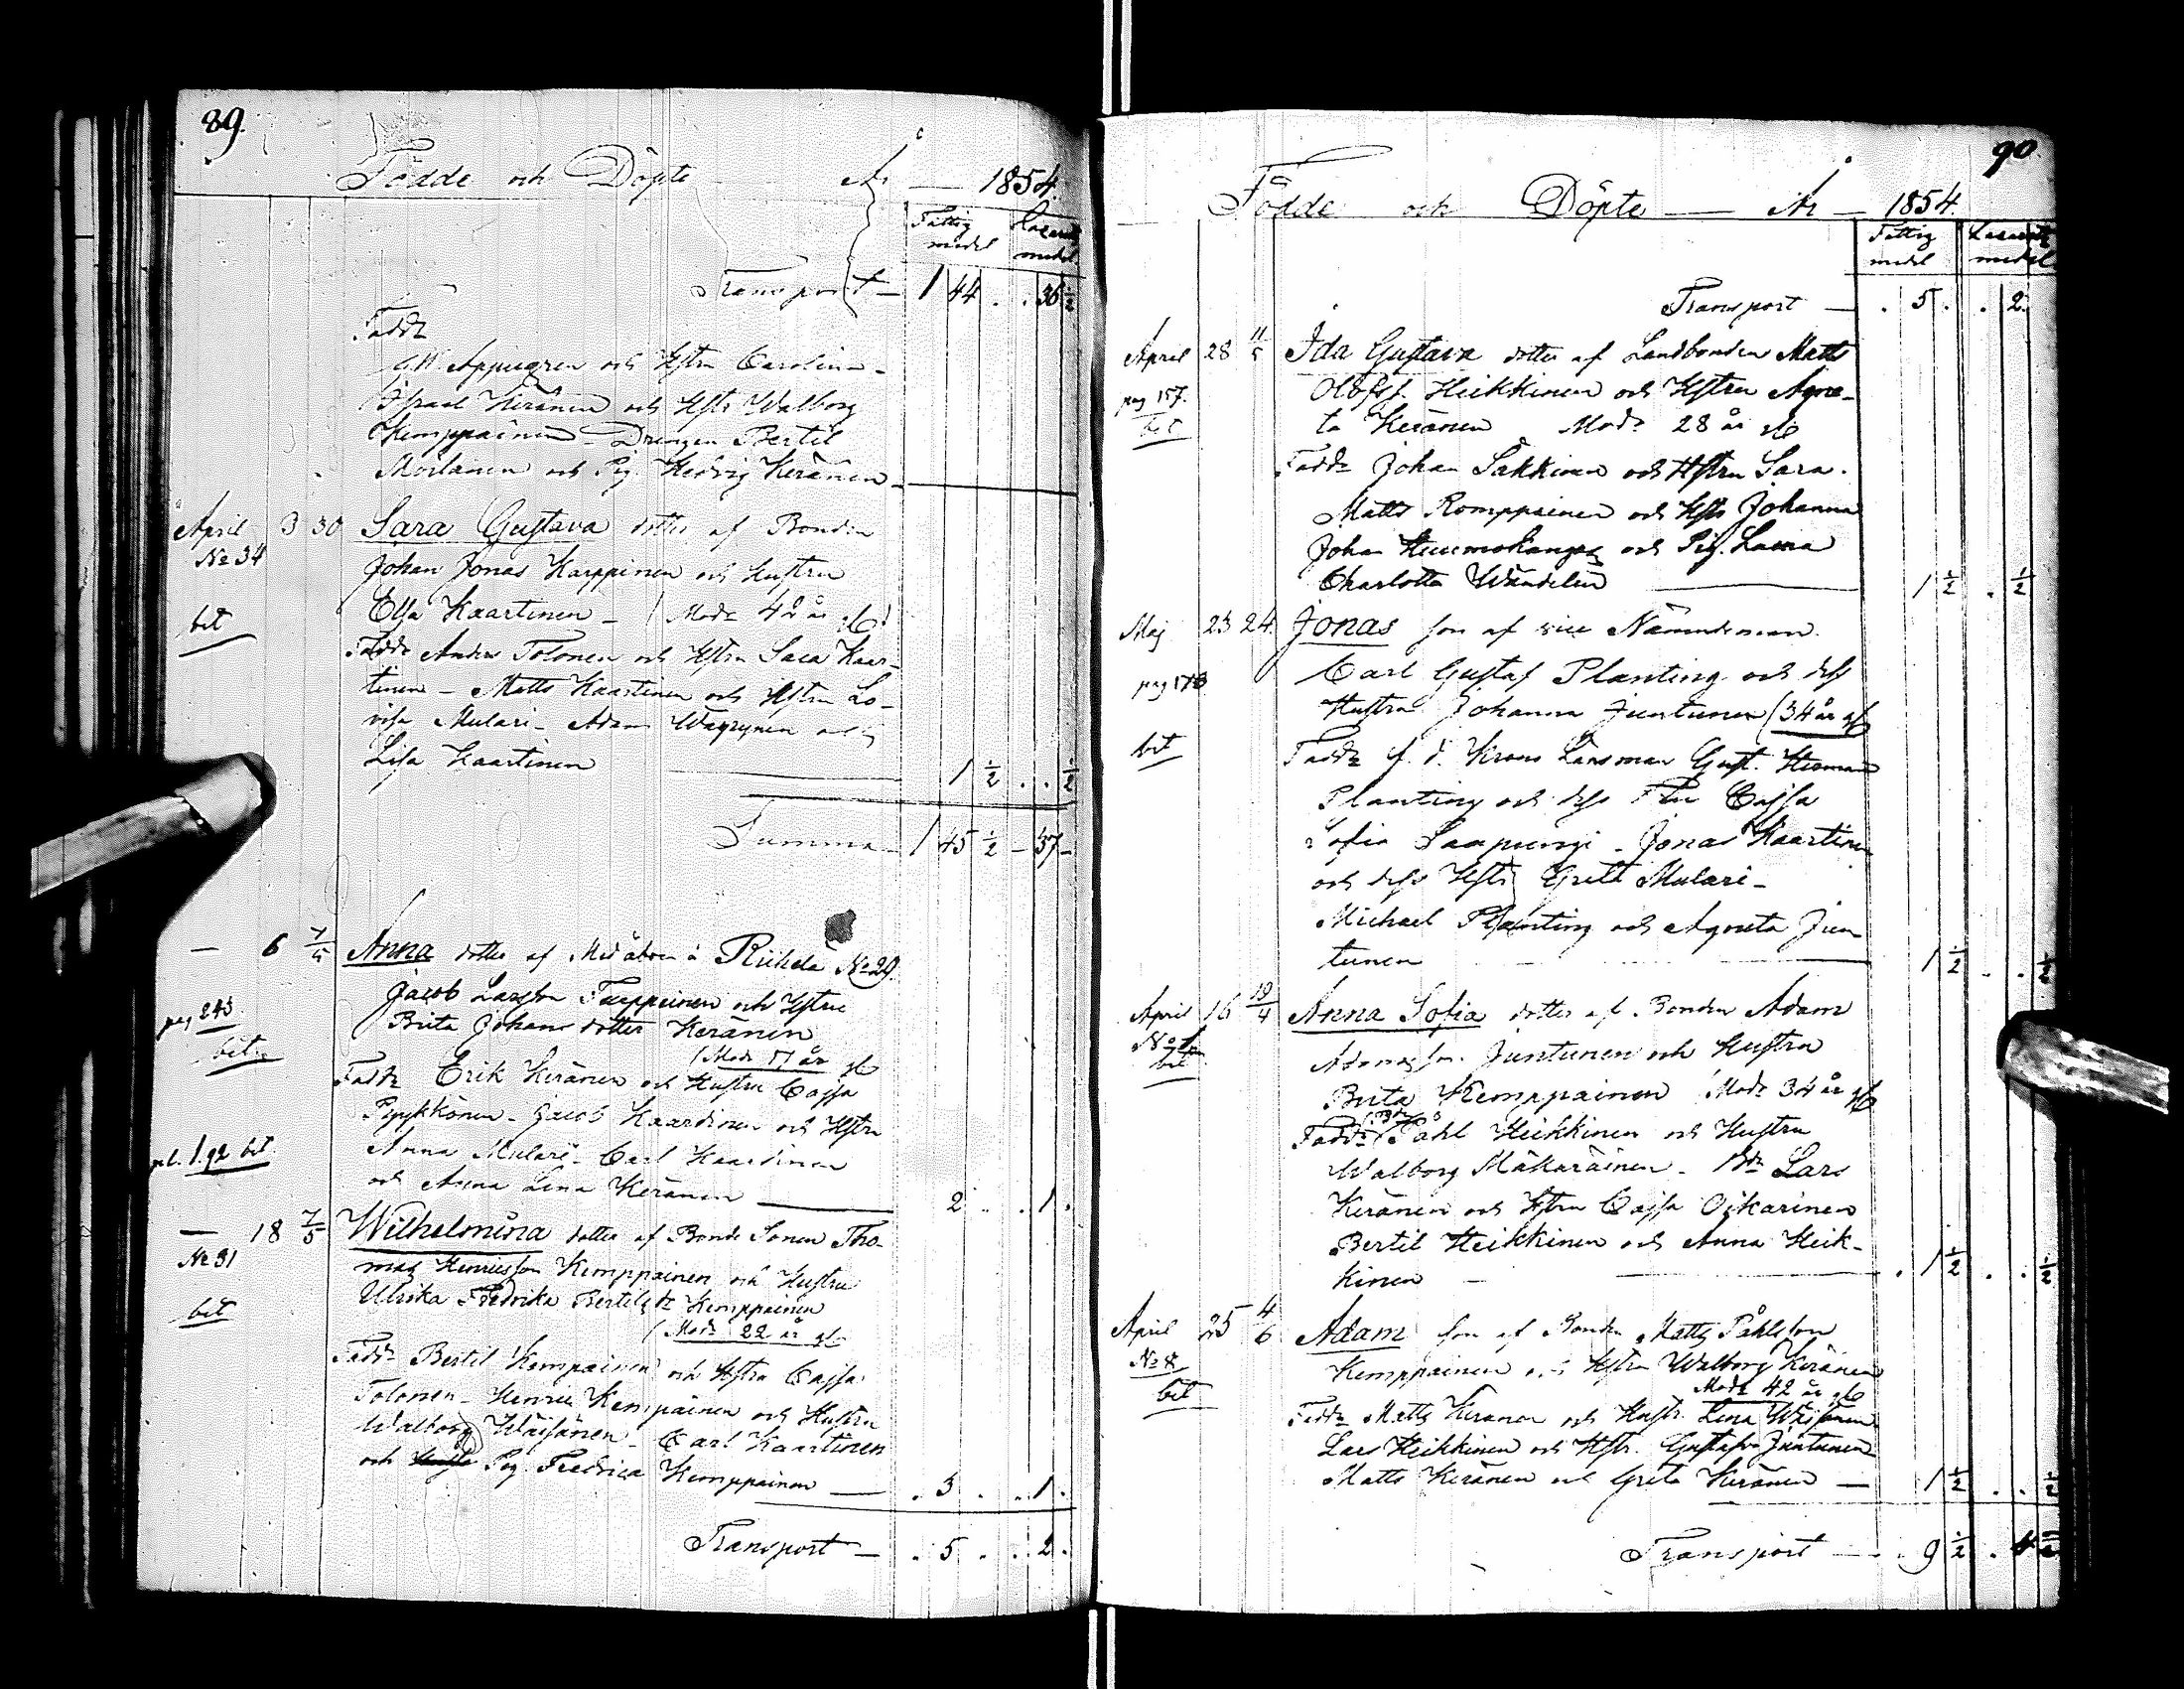 89.
Födde och Döpte År 1854.
Fattig medel Lazarets medel
Transport 1 44 . . 36 1/2
Faddr
Appelgren och Hstru Carolina
Israel Keränen och Hstr Walborg
Kemppainen - Drengen Bertil
Moilanen och Pig. Hedvig Keränen
April 3 30 Sara Gustava dotter af Bonden
No 34 Johan Jonas Karppinen och Hustru
bet Elsa Kaartinen - (Modr 42 år gl)
Faddr Anders Tolonen och Hstru Sara Kaar-
tinen - Matts Kaartinen och Hstru Lo-
visa Mulari - Adam Wäyrynen och
Lisa Kaartinen 1 1/2 . . 1/2
Summa 1 45 1/2 - 37 -
— 6 7/5 Anna dotter af Med åboen å Riihelä No 29.
Jacob Larsson Tauppinen och Hstru
pag 243 Brita Johans dotter Keränen
bet (Modr 17 år gl
Faddr Erik Keränen och Hustru Cajsa
Pyykkönen - Jacob Kaartinen och Hstru
1.92 bet. Anna Mulari - Carl Kaartinen
och Anna Lena Keränen 2 . . 1 .
— 18 7/5 Wilhelmina dotter af Bonde Sonen Tho-
No 31 mas Henricsson Kemppainen och Hustru
bet Ulrika Fredrika Bertils dr Kemppainen
(Modr 22 år gl
Faddr Bertil Kempainen och Hstru Cajsa
Tolonen - Henric Kempainen och Hustru
Walborg Wäisänen - Carl Kaartinen
och Pig. Fredrica Kemppainen . 3 . . 1 .
Transport . 5 . . 2 .
90
Födde och Döpte År 1854.
Fattig medel Lazarets medel
Transport . 5 . . 2 .
April 28 11/5 Ida Gustava dotter af Landbonden Matts
pag 157. Olofss. Heikkinen och Hstru Agne-
bet ta Keränen Modr 28 år gl
Faddr Johan Säkkinen och Hstru Sara
Matts Romppainen och Hstr Johanna
Johan Huumokangas och Pig. Laura
Charlotta Wändelin 1 1/2 . 1/2
Maj 23 24. Jonas son af vice Nämndeman
Carl Gustaf Planting och dess
Hustru Johanna Juntunen (34 år gl
bet Faddr f. d. Krono Länsman Gust. Herman
Planting och dess Fru Cajsa
Sofia Saapungi - Jonas Kaartinen
och dess Hstr Greta Mulari -
Michael Planting och Agneta Jun
tunen 1 1/2 . . 1/2
April 16 19/4 Anna Sofia dotter af Bonden Adam
Adamsson Juntunen och Hustru
bet Brita Kemppainen Modr 34 år gl
Faddr Påhl Heikkinen och Hustru
Walborg Mäkäräinen - Bdr Lars
Keränen och Hstru Cajsa Oikarinen
Bertil Heikkinen och Anna Heik-
kinen . 1 1/2 . . 1/2
April 25 4/6 Adam son af Bonden Matts Påhlsson
No 8 Kemppainen och Hstru Walborg Keränen
bet Modr 42 år gl
Faddr Matts Keränen och Hustr. Lena Wäisänen
Lars Heikkinen och Hstr. Gustafva Juntunen
Matts Keränen och Greta Keränen 1 1/2 . . 1/2
Transport . 9 1/2 . 4 1/2